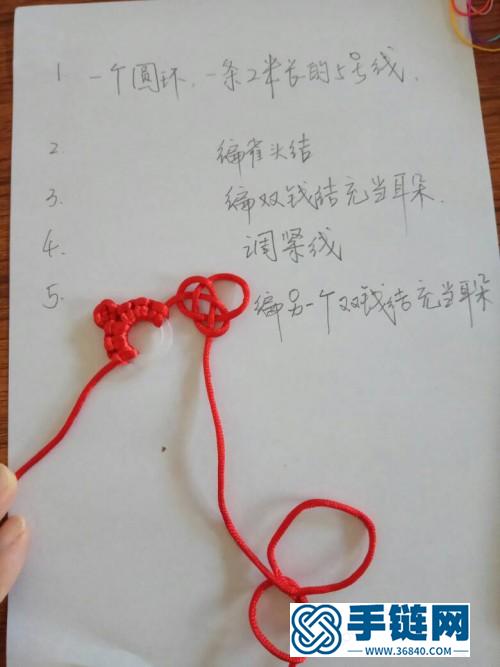 1 一个圆环,一条2米长的5号线.
2. 编雀头结
3. 编双钱结充当耳朵.
4. 调紧线
5. 编另一个双钱结充当耳朵
手链网
www.36840.com